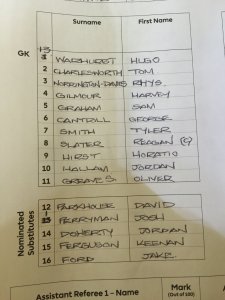 Surname First Name
GK 13 WARHURST HUGO
2 CHARLESWORTH TOM
3 NORRINGTON-DAVIES RHYS
4 GILMOUR HARVEY
5 GRAHAM SAM
6 CANTRILL GEORGE
7 SMITH TYLER
8 SLATER REAGAN (C)
9 HIRST HORATIO
10 HALLAM JORDAN
11 GREAVES OLIVER
Nominated Substitutes
12 PARKHOUSE DAVID
1 PERRYMAN JOSH
14 DOHERTY JORDAN
15 FERGUSON KEENAN
16 FORD JAKE
Assistant Referee 1 – Name Mark (Out of 100)